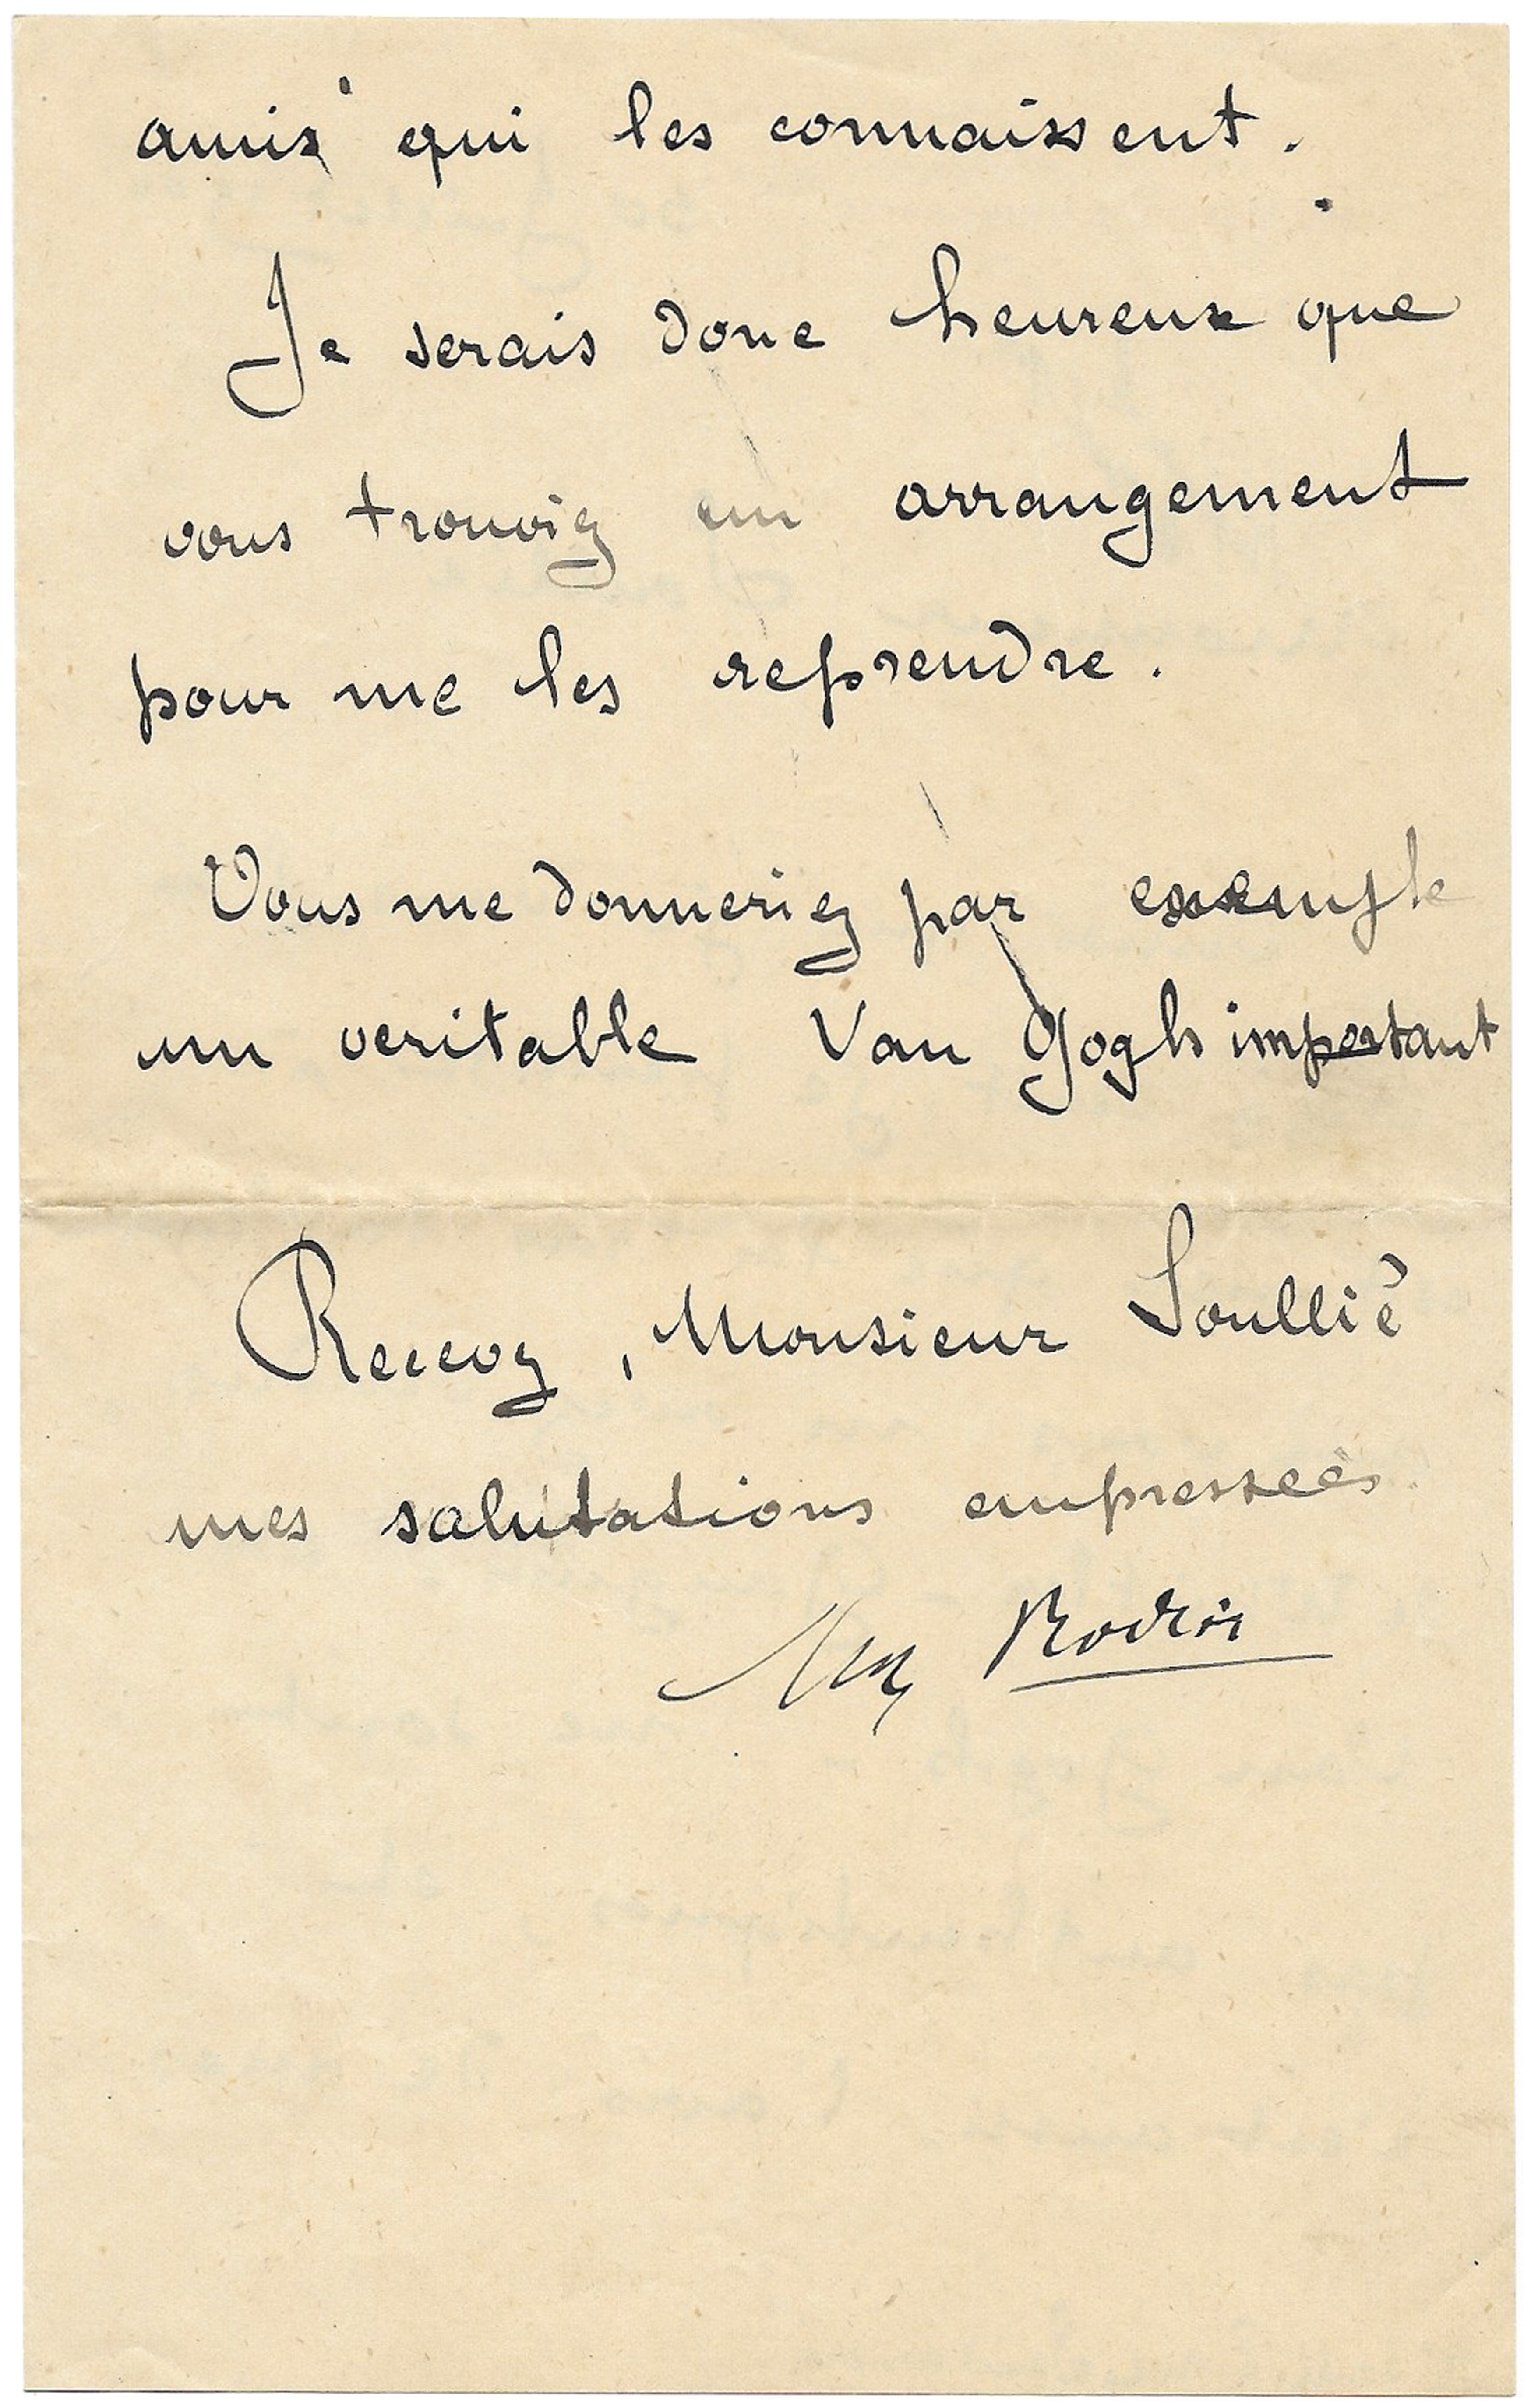 amis qui les connaissent.
Je serais donc heureux que
vous trouviez un arrangement
pour me les reprendre.
Vous me donneriez par exemple
un veritable Van Gogh important
Recevez, Monsieur Soullié
mes salutations empressées
Aug Rodin